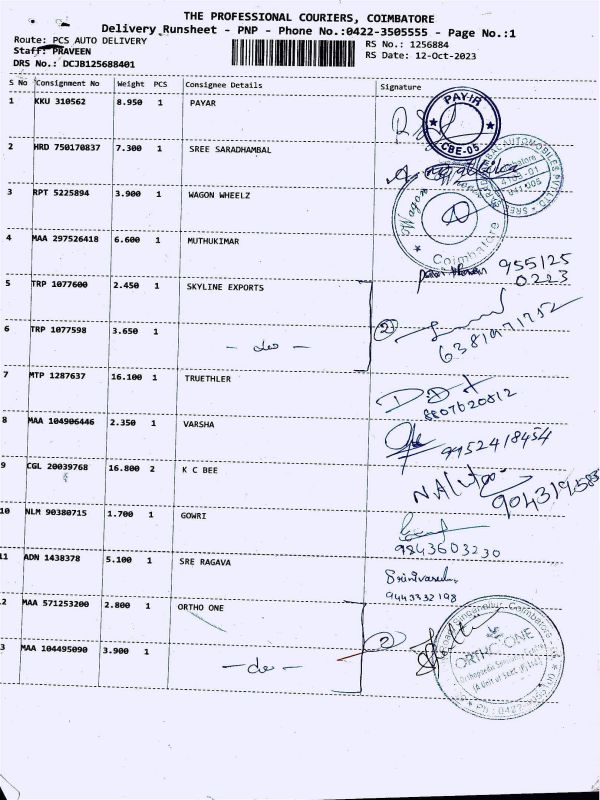 THE PROFESSIONAL COURIERS, COIMBATORE
Delivery Runsheet - PNP - Phone No.:0422-3505555 - Page No.:1
Route: PCS AUTO DELIVERY
Staff: PRAVEEN
DRS No.: DCJB125688401
RS No.: 1256884
RS Date: 12-Oct-2023
S No Consignment No Weight PCS Consignee Details Signature
1 KKU 310562 8.950 1 PAYAR
PAYIR
CBE-05
2 HRD 750170837 7.300 1 SREE SARADHAMBAL
3 RPT 5225894 3.900 1 WAGON WHEELZ
Wagon
Coimbatore
4 MAA 297526418 6.600 1 MUTHUKIMAR
955125
0223
5 TRP 1077600 2.450 1 SKYLINE EXPORTS
2
6 TRP 1077598 3.650 1 - do -
6381071752
7 MTP 1287637 16.100 1 TRUETHLER
8807620812
8 MAA 104906446 2.350 1 VARSHA
9952418454
9 CGL 20039768 16.800 2 K C BEE
10 NLM 90380715 1.700 1 GOWRI
9843603230
11 ADN 1438378 5.100 1 SRE RAGAVA
9443332198
2 MAA 571253200 2.800 1 ORTHO ONE
2
3 MAA 104495090 3.900 1 - do -
ORTHO ONE
Orthopaedic Speciality Centre